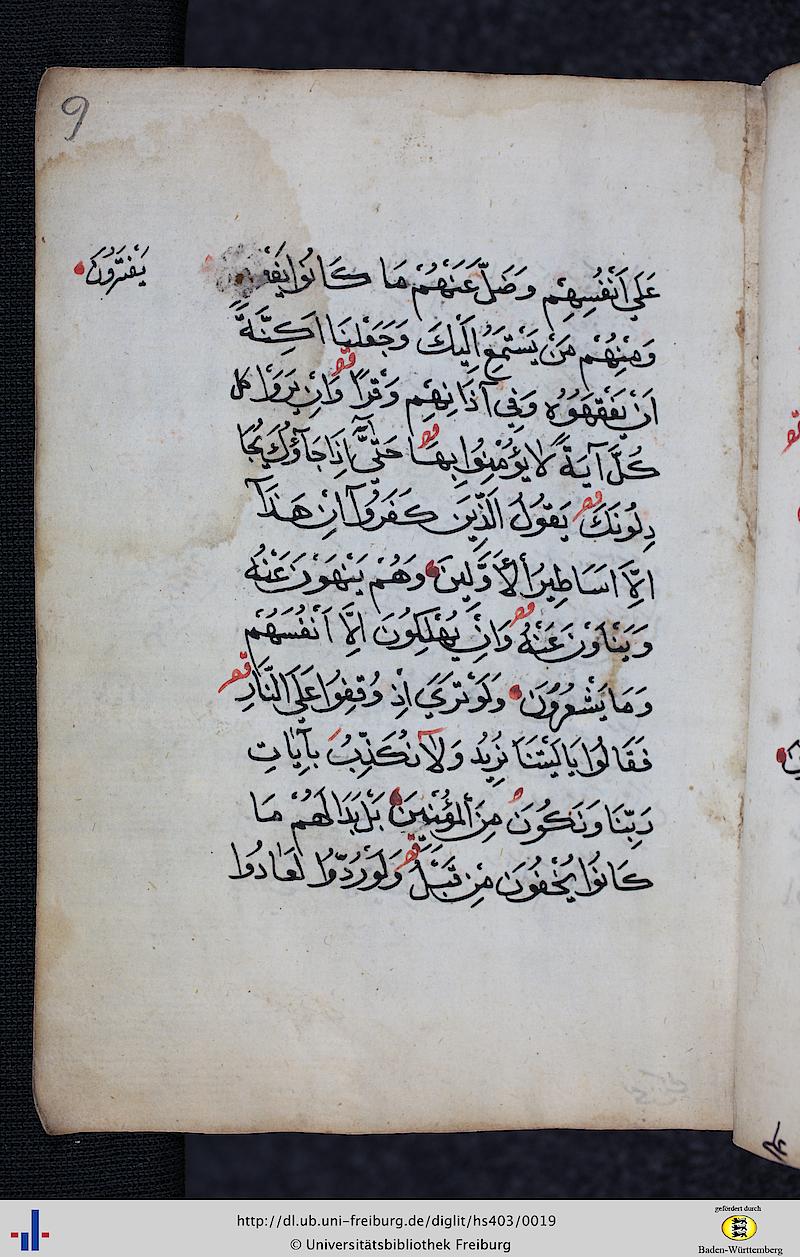 9
عَلَى اَنْفُسِهِمْ وَضَلَّ عَنْهُمْ مَا كَانُوا يَفْ
يَفْتَرُونَ
وَمِنْهُمْ مَنْ يَسْتَمِعُ اِلَيْكَ وَجَعَلْنَا اَكِنَّةً
اَنْ يَفْقَهُوهُ وَفِي آذَانِهِمْ وَقْرًا وَاِنْ يَرَوْا كل
كُلَّ آيَةً لَا يُؤْمِنُوا بِهَا حَتّٰى اِذَا جَآؤُكَ يُجَا
دِلُونَكَ يَقُولُ الَّذِينَ كَفَرُوا اِنْ هَذَآ
اِلَّا اَسَاطِيرُ الْاَوَّلِينَ وَهُمْ يَنْهَوْنَ عَنْهُ
وَيَنْاَوْنَ عَنْهُ وَاِنْ يُهْلِكُونَ اِلَّا اَنْفُسَهُمْ
وَمَا يَشْعُرُونَ وَلَوْ تَرَي اِذْ وُقِفُوا عَلَى النَّارِ
فَقَالُوا يَا لَيْتَنَا نُرَدُّ وَلَا نُكَذِّبُ بِآيَاتِ
رَبِّنَا وَنَكُونَ مِنَ الْمُؤْمِنِينَ بَلْ بَدَا لَهُمْ مَا
كَانُوا يُخْفُونَ مِنْ قَبْلُ وَلَوْ رُدُّوا لَعَادُوا
http://dl.ub.uni-freiburg.de/diglit/hs403/0019
© Universitätsbibliothek Freiburg
gefördert durch
Baden-Württemberg